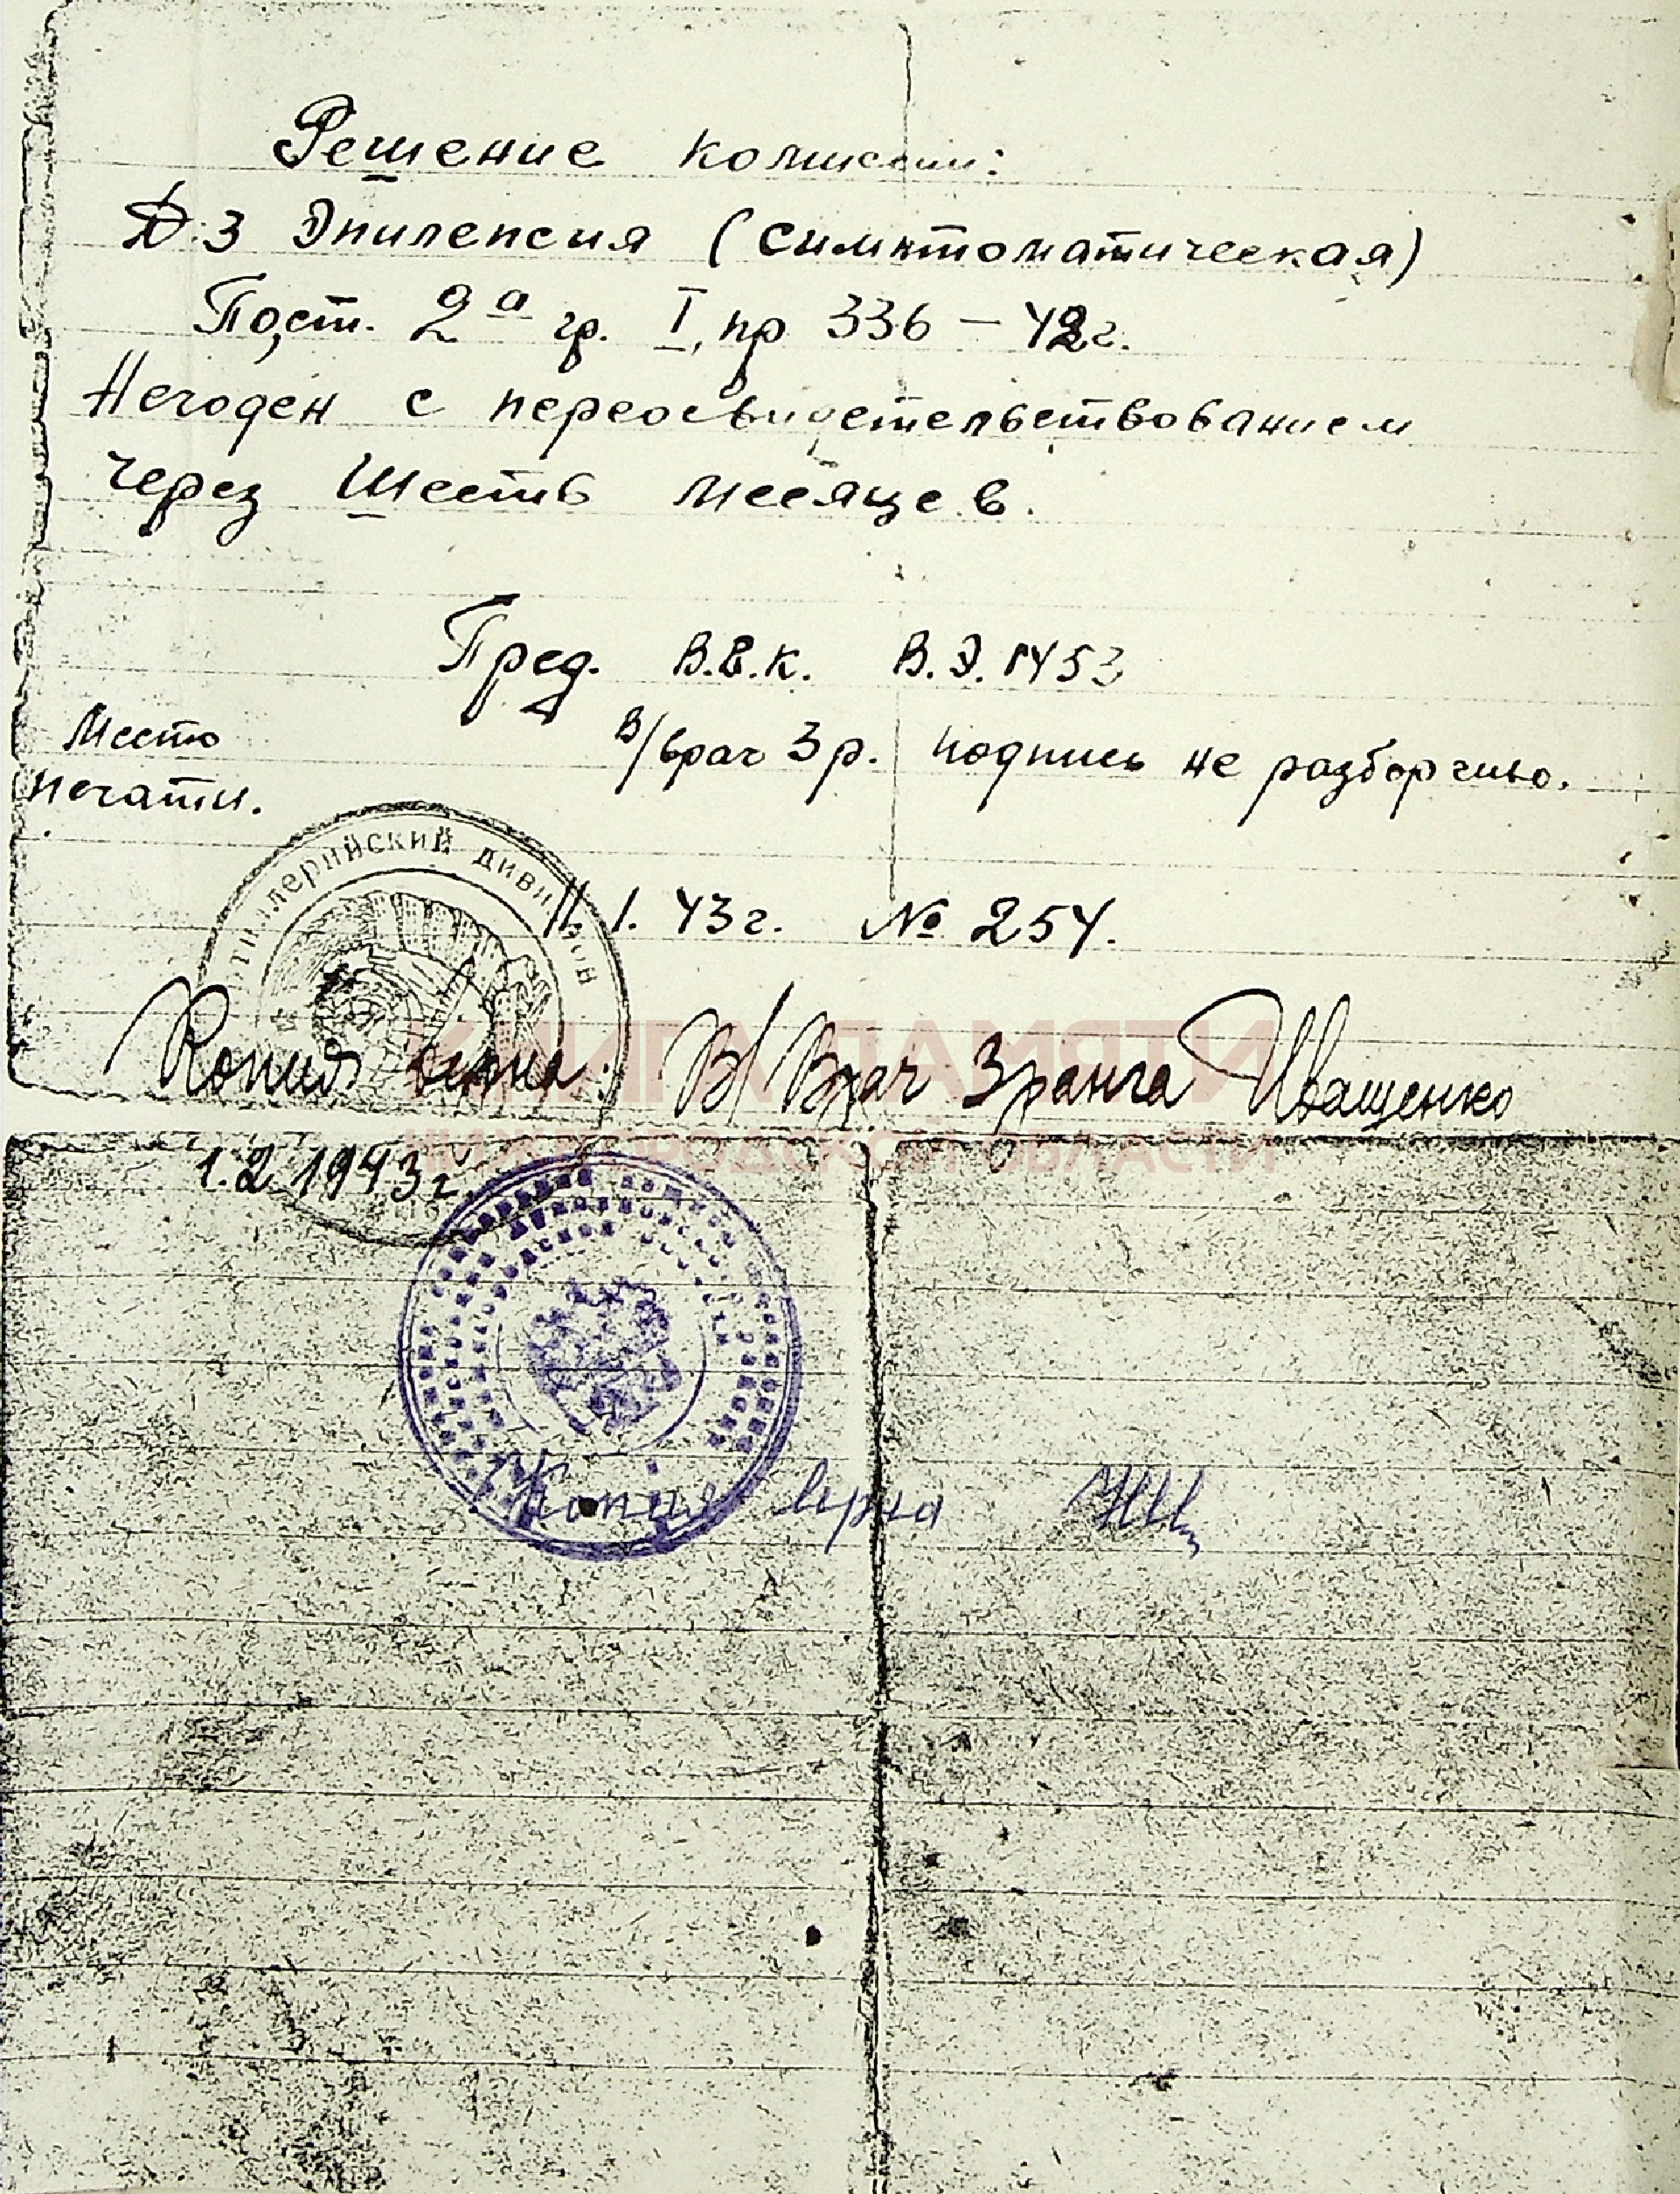 Решение комиссии:
Д.з Эпилепсия (симптоматическая)
Пост. 2а гр. I, пр 336 – 42г.
Негоден с переосвидетельствованием
через шесть месяцев.
Пред. В.В.К. В.Э. 1453
Место
печати.
В/врач 3 р. подпись не разборчиво.
артиллерийский дивизион
11.1.43г. № 254.
Копия верна: В/Врач 3 ранга Иващенко
КНИГА ПАМЯТИ
НИЖЕГОРОДСКОЙ ОБЛАСТИ
1.2 1943 г.
Копия верна